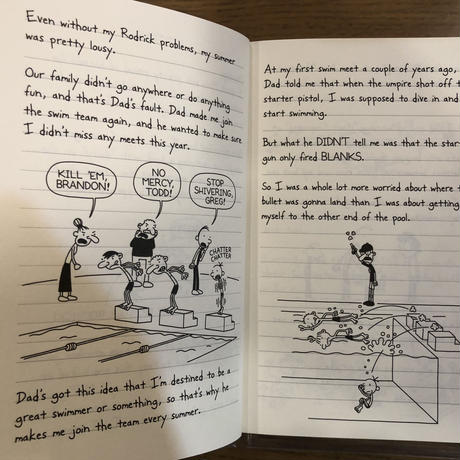 Even without my Rodrick problems, my summer
was pretty lousy.
Our family didn't go anywhere or do anything
fun, and that's Dad's fault. Dad made me join
the swim team again, and he wanted to make sure
I didn't miss any meets this year.
KILL 'EM,
BRANDON!
NO
MERCY,
TODD!
STOP
SHIVERING,
GREG!
CHATTER
CHATTER
Dad's got this idea that I'm destined to be a
great swimmer or something, so that's why he
makes me join the team every summer.
At my first swim meet a couple of years ago,
Dad told me that when the umpire shot off
starter pistol, I was supposed to dive in and
start swimming.
But what he DIDN'T tell me was that the
gun only fired BLANKS.
So I was a whole lot more worried about where
bullet was gonna land than I was about getting
myself to the other end of the pool.